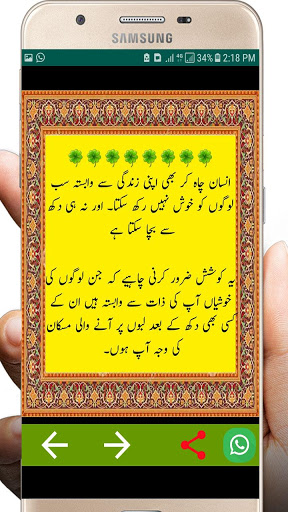 SAMSUNG
4G 34% 2:18 PM
انسان چاہ کر بھی اپنی زندگی سے وابستہ سب
لوگوں کو خوش نہیں رکھ سکتا۔ اور نہ ہی دکھ
سے بچا سکتا ہے
یہ کوشش ضرور کرنی چاہیے کہ جن لوگوں کی
خوشیاں آپ کی ذات سے وابستہ ہیں ان کے
کسی بھی دکھ کے بعد لبوں پر آنے والی مسکان
کی وجہ آپ ہوں۔